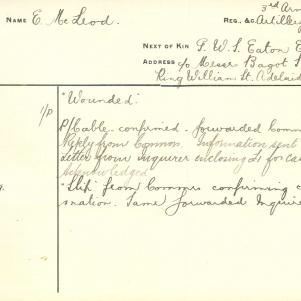 3rd Arm
NAME E. McLeod. REG. &c. Artillery
NEXT OF KIN F. W. S. Eaton E
ADDRESS c/o Messr Bagot S
King William St. Adelaid
"Wounded."
P/Cable confirmed. forwarded Comm
Reply from Commrs. Information sent
Letter from Inquirer enclosing for ca
Acknowledged
Slip from Commrs confirming c
mation. Same forwarded Inquire